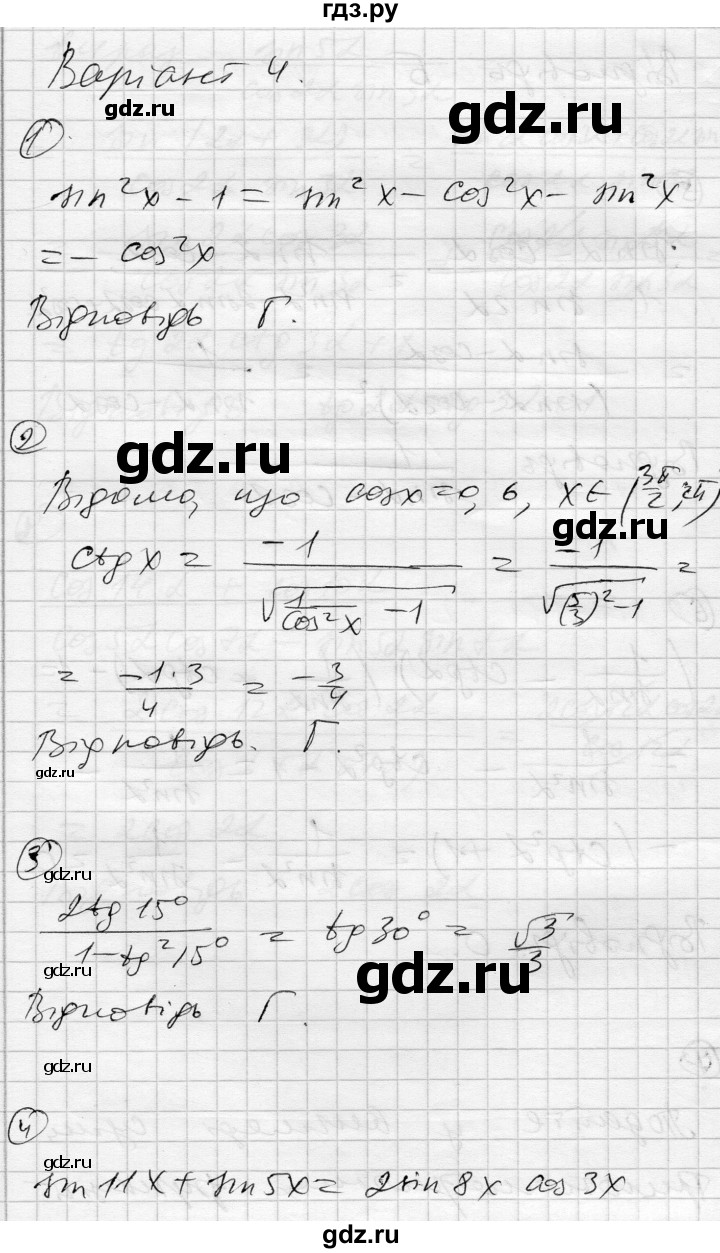 гдз.ру
Варіант 4.
gdz.ru
gdz.ru
1.
sin²x - 1 = sin²x - cos²x - sin²x
= - cos²x
Відповідь Г.
gdz.ru
2
gdz.ru
Відомо, що cosx=0,6, x∈(3π/2; 2π)
gdz.ru
ctgx = -1/√(1/cos²x - 1) = -1/√((5/3)² - 1) =
= -1·3/4 = -3/4
Відповідь. Г.
gdz.ru
3
gdz.ru
2tg15°/(1-tg²15°) = tg30° = √3/3
gdz.ru
gdz.ru
Відповідь Г.
gdz.ru
4
gdz.ru
sin11x + sin5x = 2sin8x cos3x
gdz.ru
гдз.ру